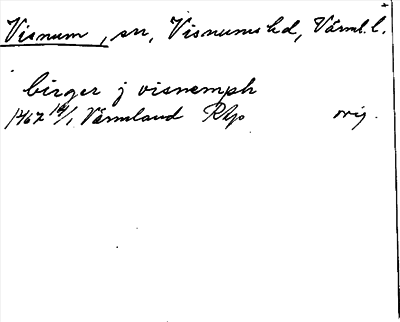 Visnum, sn, Visnums hd, Värml. l.
birger j visnemph
1467 14/1 Värmland RAp orig.